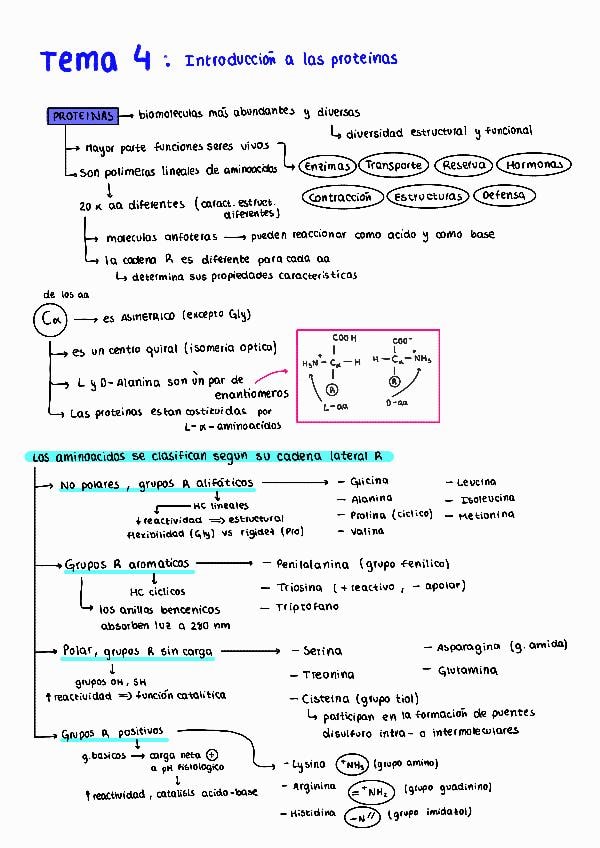 Tema 4 : Introducción a las proteinas
PROTEINAS → biomoleculas más abundantes y diversas
↳ diversidad estructural y funcional
→ Mayor parte funciones seres vivos
Enzimas Transporte Reserva Hormonas
↳ Son polimeros lineales de aminoacidos
Contracción Estructuras Defensa
20 α aa diferentes (caract. estruct. diferentes)
→ moleculas anfoteras → pueden reaccionar como acido y como base
↳ la cadena R es diferente para cada aa
↳ determina sus propiedades caracteristicas
de los aa
Cα → es ASIMETRICO (excepto Gly)
→ es un centro quiral (isomeria optica)
→ L y D-Alanina son un par de enantiomeros
↳ Las proteinas estan costituidas por
L-α-aminoacidos
COOH
H₃N⁺-Cα-H
R
L-aa
COO⁻
H-Cα-NH₃⁺
R
D-aa
Los aminoacidos se clasifican segun su cadena lateral R
→ No polares, grupos R alifáticos →
HC lineales
↓ reactividad ⇒ estructural
flexibilidad (Gly) vs rigidet (Pro)
- Glicina
- Alanina
- Prolina (ciclico)
- Valina
- Leucina
- Isoleucina
- Metionina
→ Grupos R aromaticos →
HC ciclicos
↳ los anillos bencenicos
absorben luz a 280 nm
- Fenilalanina (grupo fenilico)
- Triosina (+ reactivo, - apolar)
- Triptofano
→ Polar, grupos R sin carga →
grupos OH, SH
↑ reactividad ⇒ función catalitica
- Serina
- Treonina
- Cisteina (grupo tiol)
↳ participan en la formación de puentes
disulfuro intra- o intermoleculares
- Asparagina (g. amida)
- Glutamina
→ Grupos R positivos
g. basicos → carga neta ⊕
a pH fisiologico
↑ reactividad, catalisis acido-base
- Lysina ⁺NH₃ (grupo amino)
- Arginina =⁺NH₂ (grupo guadinino)
- Histidina -N// (grupo imidatol)